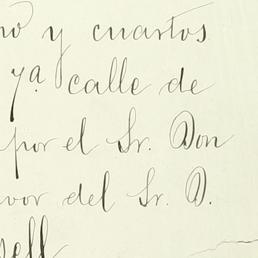 no y cuartos
7ª calle de
por el Sr. Don
vor del Sr. D.
sell